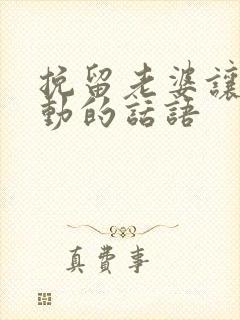 挽留老婆讓
動的話語
真費事